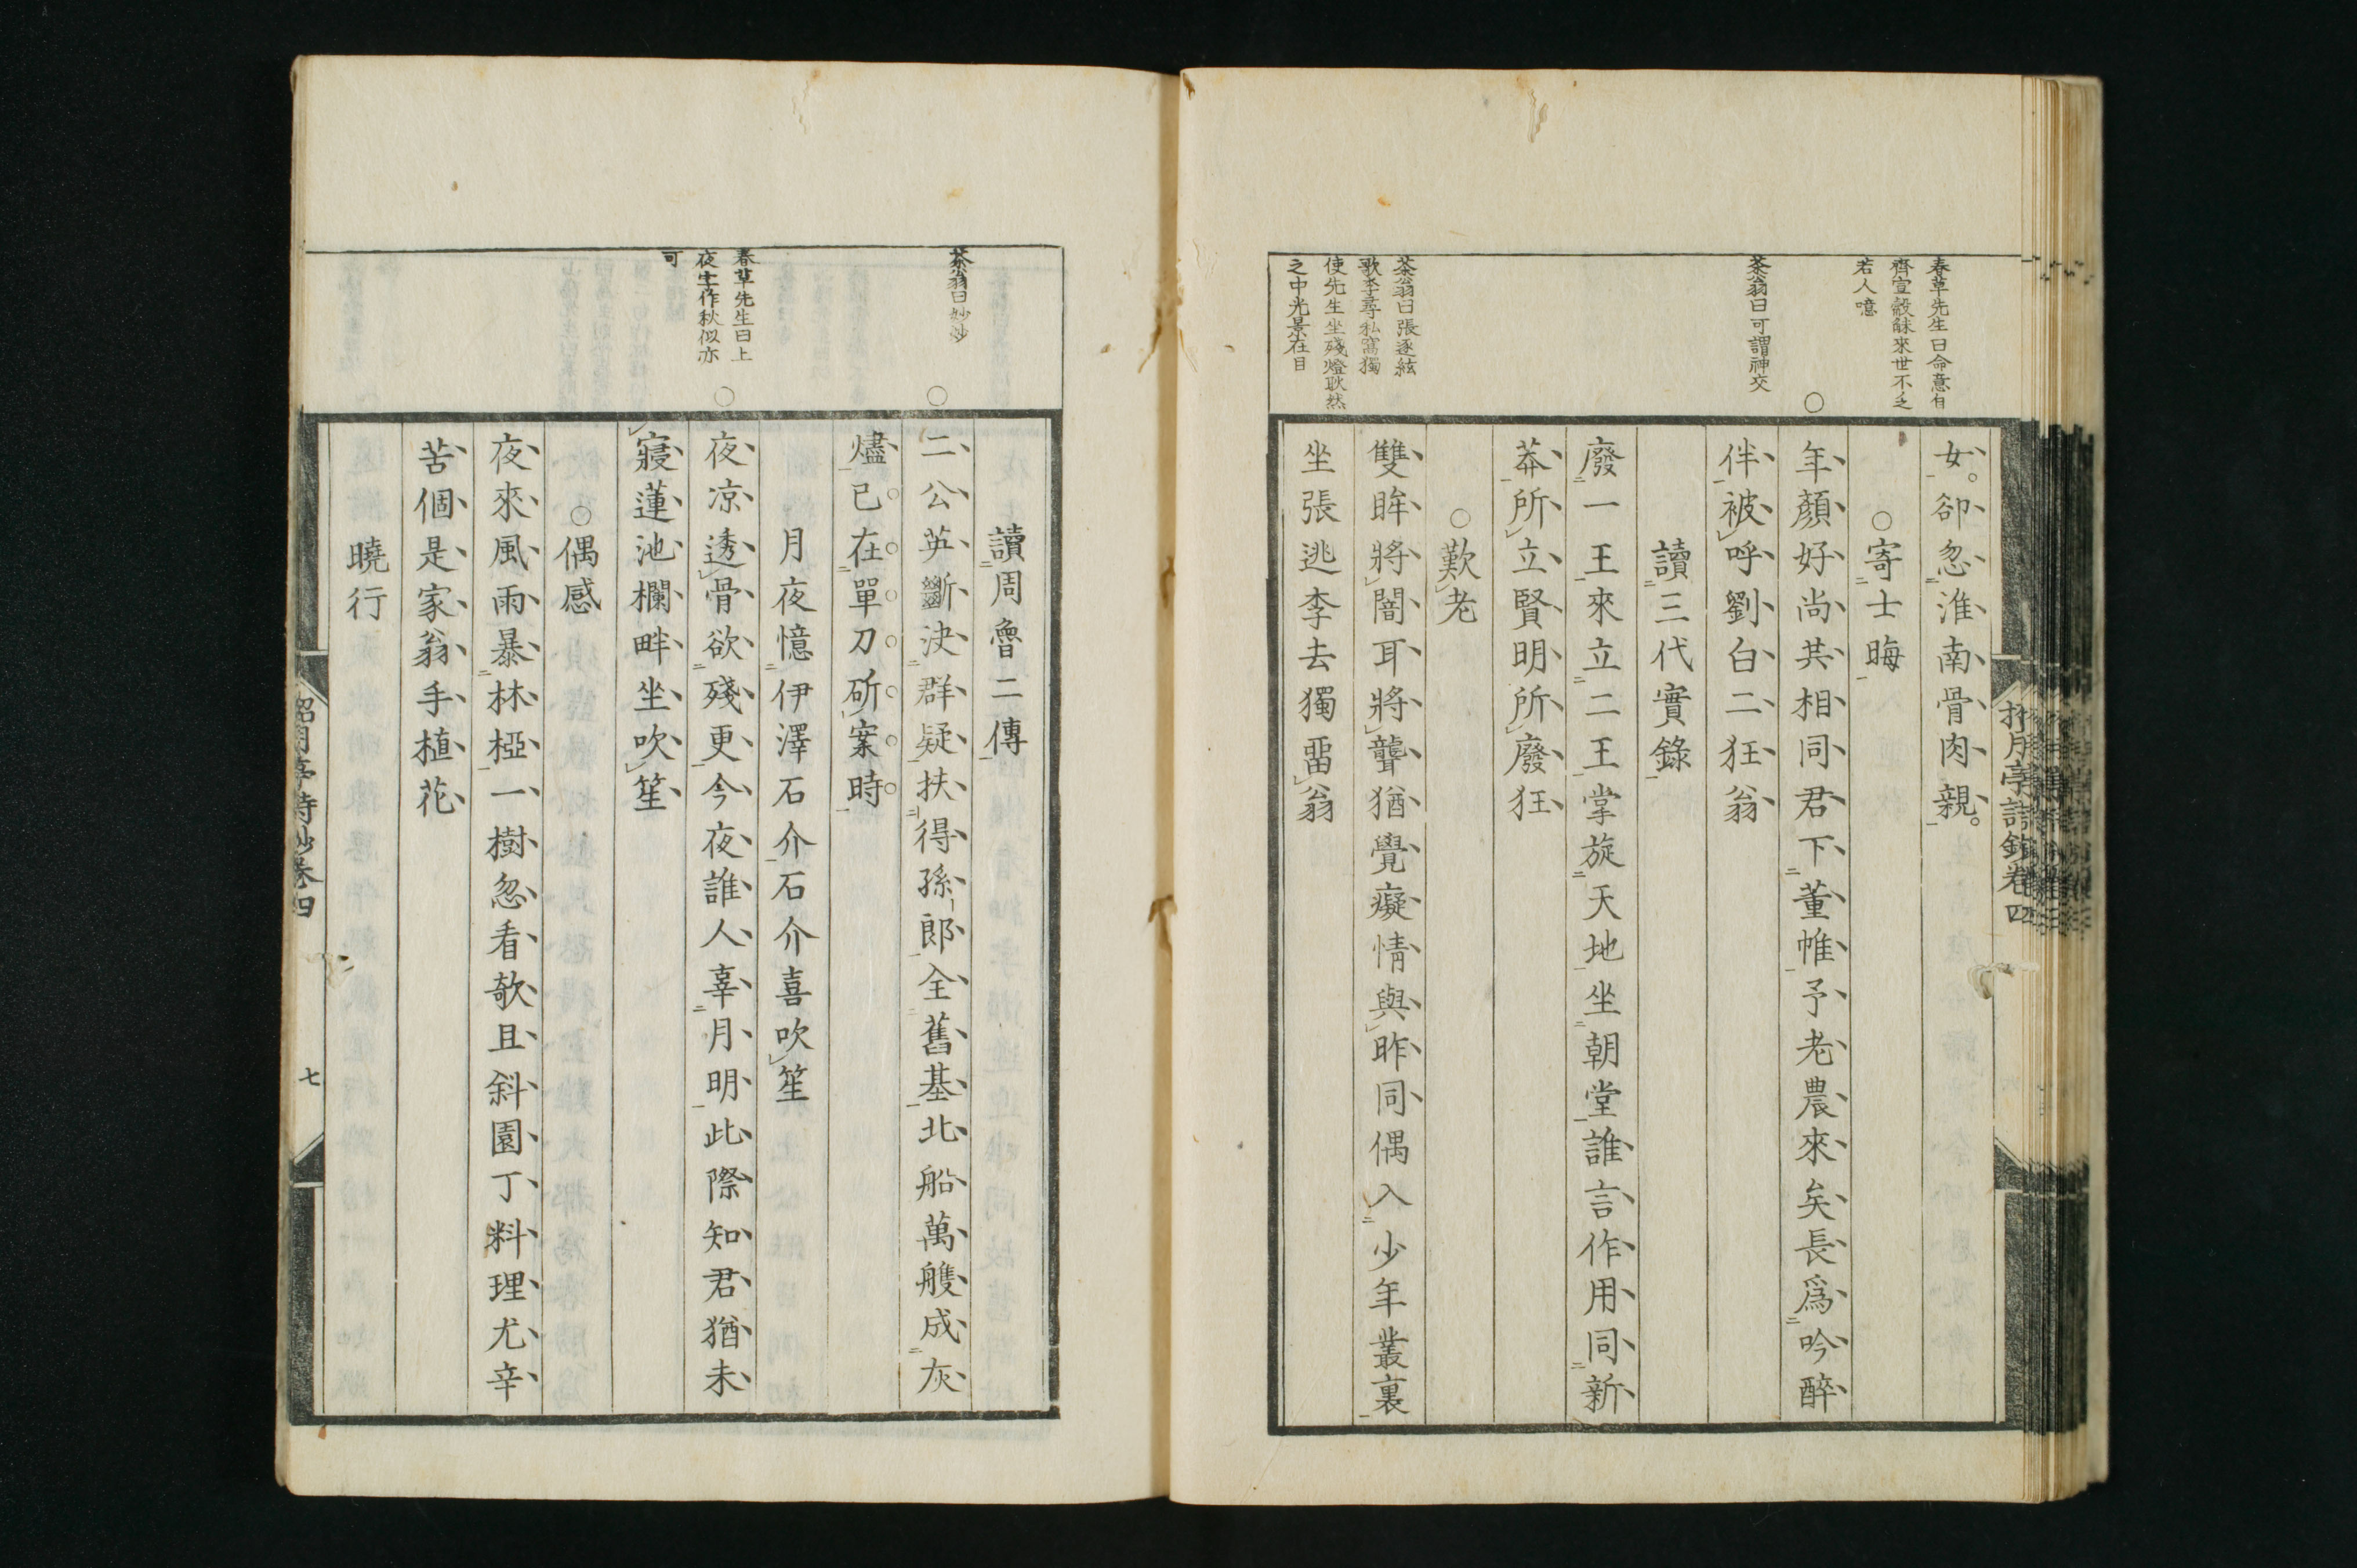 春草先生曰命意自
齊宣觳觫來世不乏
若人噫
茶翁曰可謂神交
茶翁曰張逐絃
歌李尋私窩獨
使先生坐殘燈耿然
之中光景在目
女卻忽淮南骨肉親
○寄士晦
年顏好尚共相同君下董帷予老農來矣長爲吟醉
伴被呼劉白二狂翁
讀三代實錄
廢一王來立二王掌旋天地坐朝堂誰言作用同新
莽所立賢明所廢狂
○歎老
雙眸將闇耳將聾猶覺癡情與昨同偶入少年叢裏
坐張逃李去獨畱翁
茶翁曰妙妙
春草先生曰上
夜字作秋似亦
可
讀周魯二傳
二公英斷決群疑扶得孫郎全舊基北船萬艘成灰
燼已在單刀斫案時
月夜憶伊澤石介石介喜吹笙
夜凉透骨欲殘更今夜誰人辜月明此際知君猶未
寢蓮池欄畔坐吹笙
○偶感
夜來風雨暴林椏一樹忽看欹且斜園丁料理尤辛
苦個是家翁手植花
曉行
七